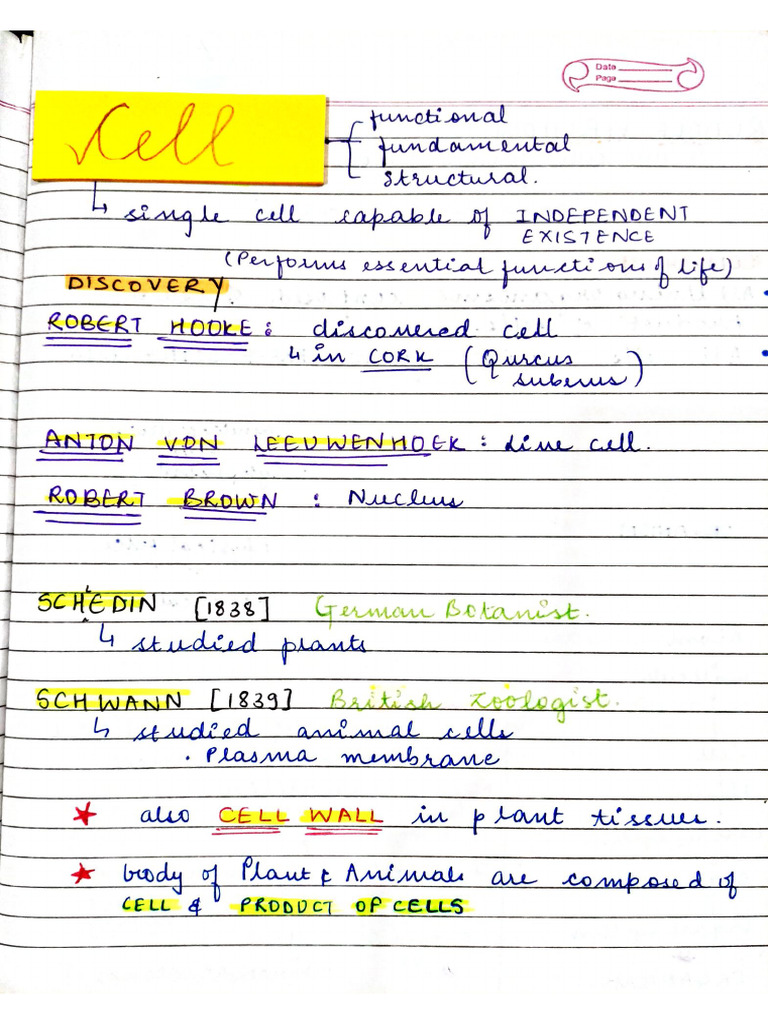 Date
Page
Cell
functional
fundamental
structural.
↳ single cell capable of INDEPENDENT
EXISTENCE
(Performs essential functions of life)
DISCOVERY
ROBERT HOOKE : discovered cell
↳ in CORK (Qurcus
suberus)
ANTON VON LEEUWENHOEK : live cell.
ROBERT BROWN : Nucleus
SCHLEDIN [1838] German Botanist.
↳ studied plants
SCHWANN [1839] British Zoologist.
↳ studied animal cells
. Plasma membrane
★ also CELL WALL in plant tissues.
★ body of Plant & Animals are composed of
CELL & PRODUCT OF CELLS